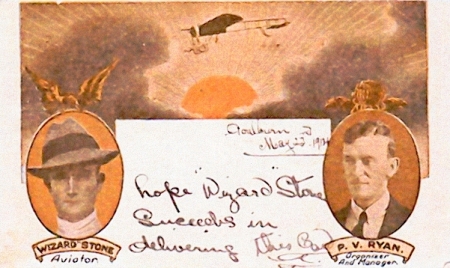 Goulburn
May 22
hope "Wizard" Stone
Succeeds in
delivering this
WIZARD STONE
Aviator.
P. V. RYAN.
Organizer
And Manager.